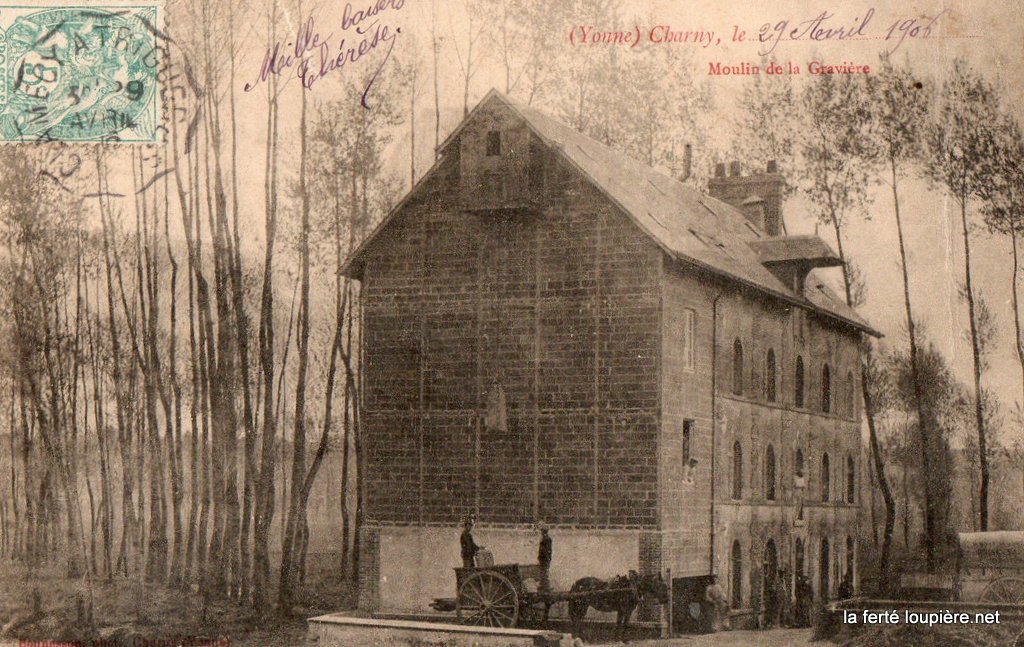 Mille baisers
Thérèse.
(Yonne) Charny, le 29 Avril 1906
Moulin de la Gravière
29
AVRIL
la ferté loupière.net